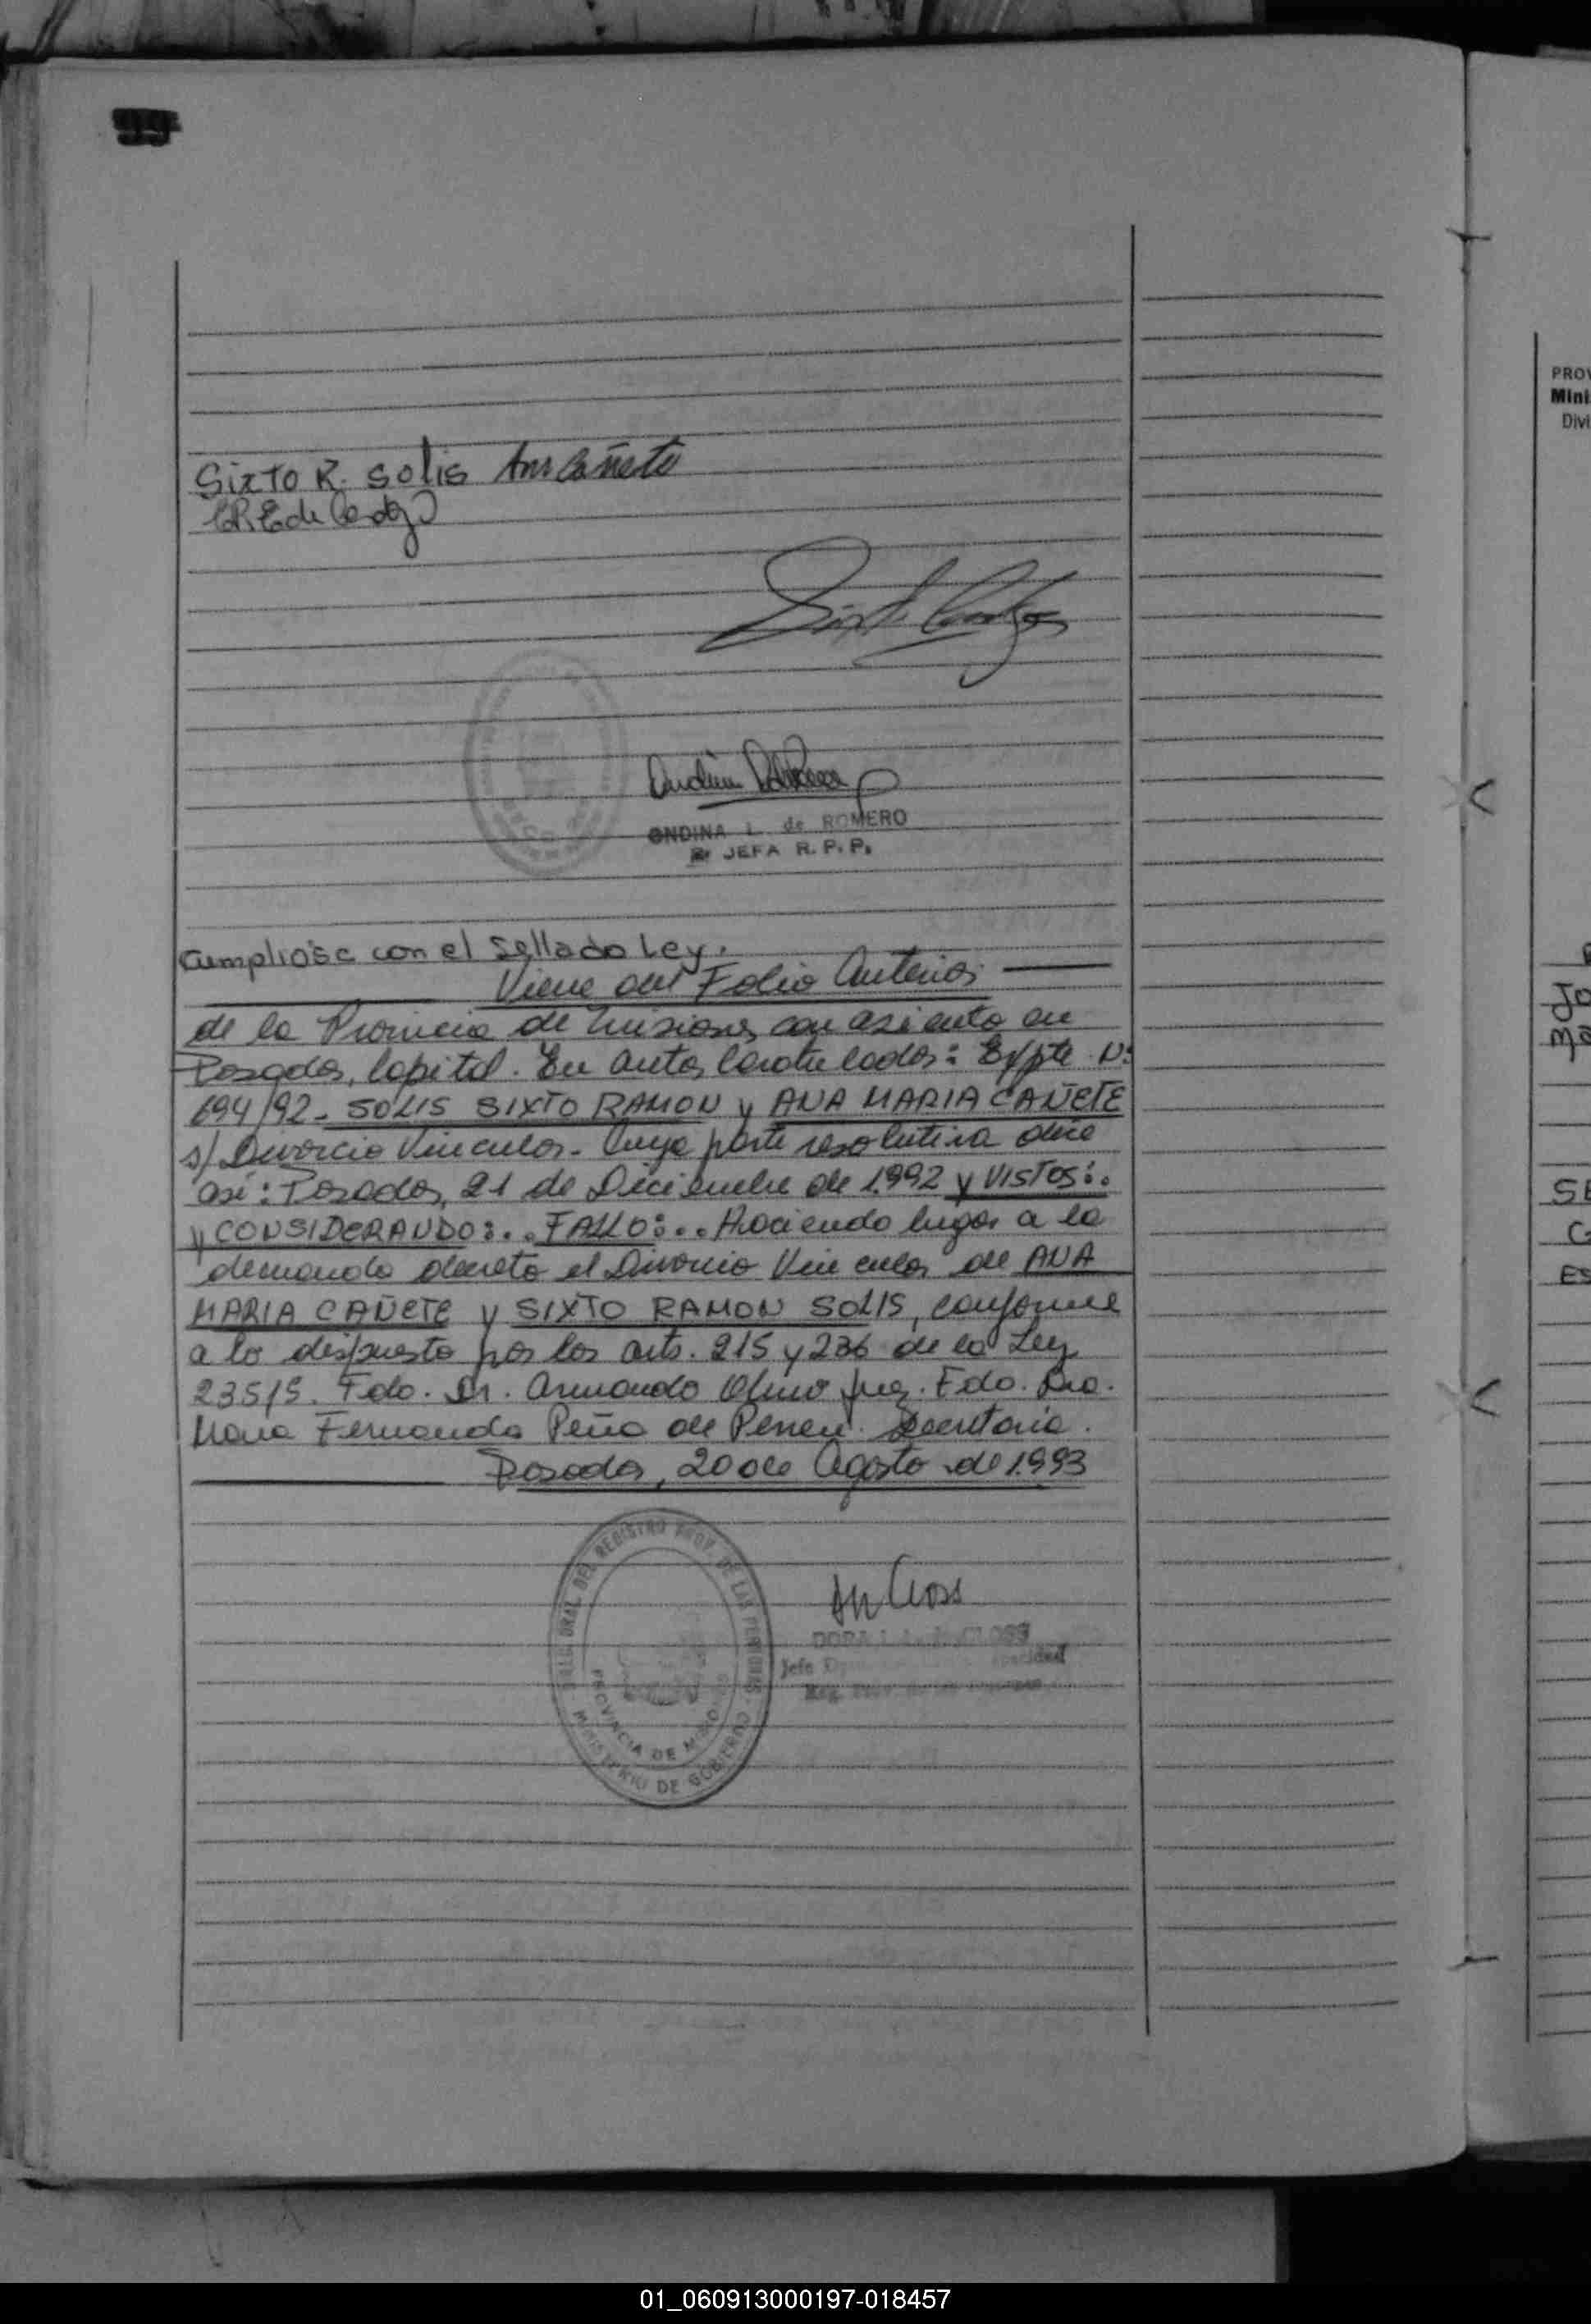 99
Sixto R. Solis Ana Cañete
ONDINA L. de ROMERO
JEFA R. P. P.
Cumpliose con el Sellado Ley.
Viene del Folio Anterior
de la Provincia de Misiones con asiento en
Posadas, Capital. En autos Caratulados: Expte. Nº
694/92 - SOLIS SIXTO RAMON y ANA MARIA CAÑETE
s/ Divorcio Vincular - Cuya parte resolutiva dice
así: Posadas, 21 de Diciembre de 1992 y VISTOS:..
y CONSIDERANDO:.. FALLO:.. Haciendo lugar a la
demanda decreto el Divorcio Vincular de ANA
MARIA CAÑETE y SIXTO RAMON SOLIS, conforme
a lo dispuesto por los arts. 215 y 236 de la Ley
23515. Fdo. Dr. Armando Juez. Fdo. Dra.
Maria Fernanda Peña de Secretaria.
Posadas, 20 de Agosto de 1993
GRAL. DEL REGISTRO PROV. DE LAS PERSONAS
PROVINCIA DE MISIONES
MINISTERIO DE GOBIERNO
DORA CLOSS
Jefe
PROV
Mini
Divi
Jo
Ma
SE
C
ES
01_060913000197-018457